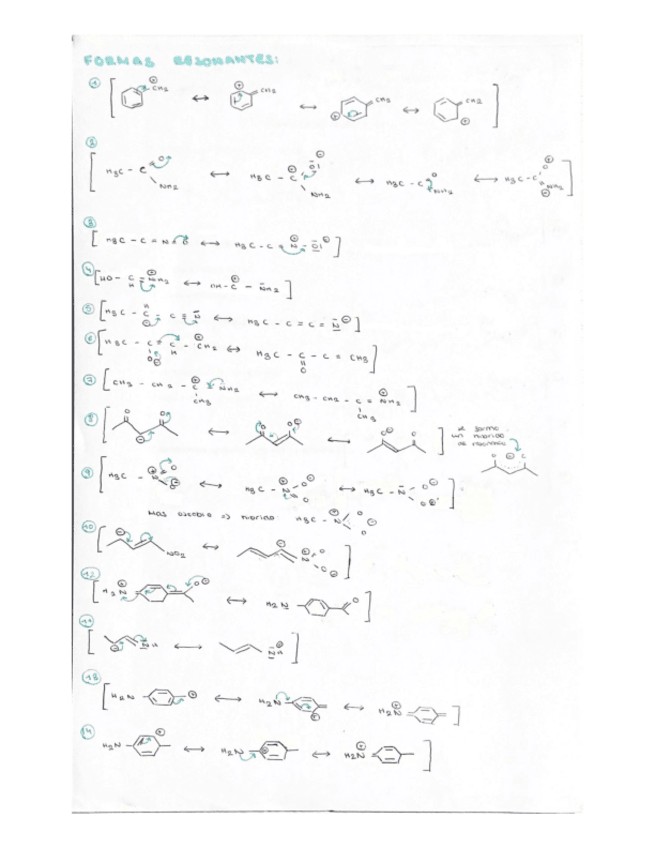 FORMAS RESONANTES:
1 [ ⊕ CH2 ↔ ⊕ CH2 ↔ ⊕ CH2 ↔ CH2 ⊕ ]
2 [ H3C - C O NH2 ↔ H3C - C ⊕ O ⊖ NH2 ↔ H3C - C O NH2 ↔ H3C - C O ⊕ NH2 ⊖ ]
3 [ H3C - C = N = O ↔ H3C - C = N - O ⊖ ]
4 [ HO - C H = NH2 ⊕ ↔ OH - C ⊕ - NH2 ]
5 [ H3C - C H ⊖ - C ≡ N ↔ H3C - C = C = N ⊖ ]
6 [ H3C - C = C H - CH2 ⊕ O ⊖ ↔ H3C - C - C = CH3 O ]
7 [ CH3 - CH2 - C ⊕ NH2 CH3 ↔ CH3 - CH2 - C = NH2 ⊕ CH3 ]
8 [ O O ⊖ ↔ O O ⊖ ↔ O ⊖ O ] se forma un híbrido de resonancia
9 [ H3C - N ⊕ O O ⊖ ↔ H3C - N ⊕ O ⊖ O ↔ H3C - N O ⊖ O ⊕ ]
Mas estable => híbrido H3C - N O O ⊖
10 [ ⊖ NO2 ↔ ⊖ ⊕ N O O ⊖ ]
12 [ H2N ⊕ O ⊖ ↔ H2N O ]
11 [ ⊖ NH ↔ NH ⊖ ]
13 [ H2N ⊕ ↔ H2N ⊕ ↔ H2N ⊕ ]
14 H2N ⊕ ↔ H2N ⊕ ↔ H2N ⊕ ]